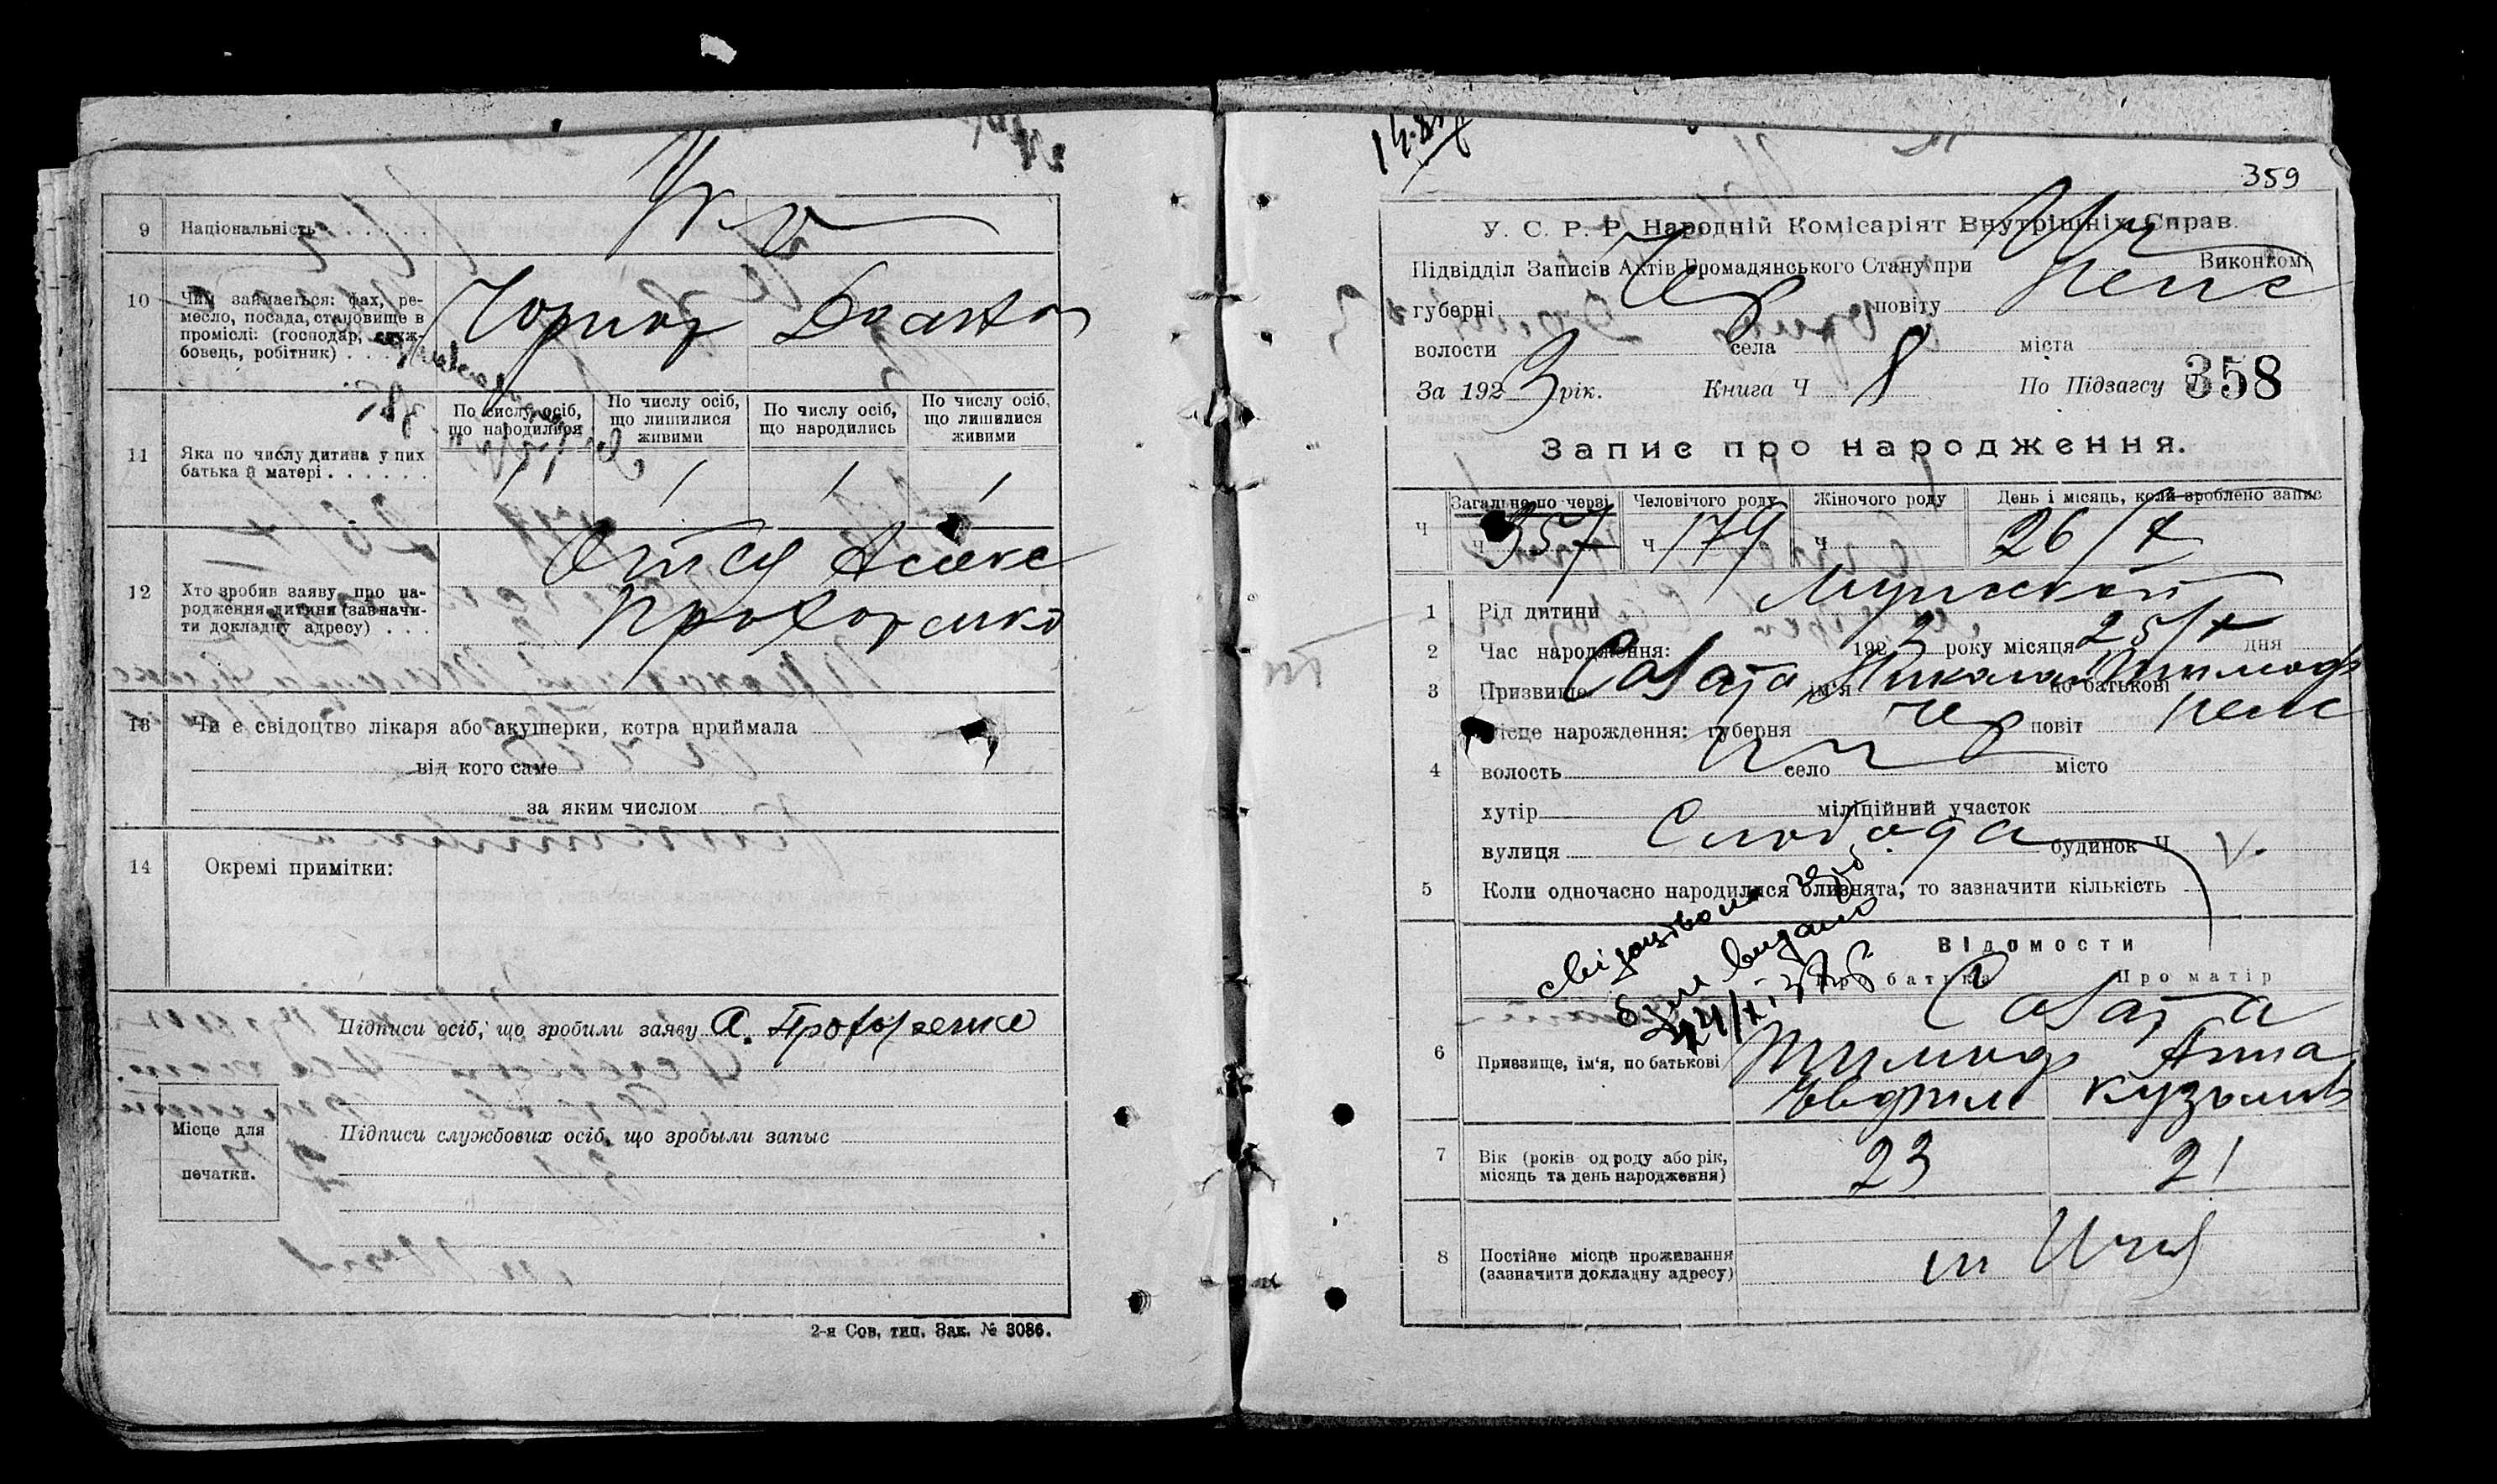 9 Національність . . . . . . Укр
10 Чим займається: фах, ре-
месло, посада, становище в
проміслі: (господар, служ-
бовець, робітник) . . . .
11 Яка по числу дитина у них
батька й матері . . . . . .
По числу осіб, що народилися
По числу осіб, що лишилися живими
По числу осіб, що народились
По числу осіб, що лишилися живими
1 1 1 1
12 Хто зробив заяву про на-
родження дитини (зазначи-
ти докладну адресу) . . .
Отец Алекс
Прохоренко
13 Чи є свідоцтво лікаря або акушерки, котра приймала
від кого саме
за яким числом
14 Окремі примітки:
Підписи осіб, що зробили заяву А. Прохоренко
Підписи службових осіб, що зробыли запыс
Місце для
печатки.
2-я Сов. тип. Зак. № 3086.
359
У. С. Р. Р. Народній Комісаріят Внутрішніх Справ.
Підвідділ Записів Актів Громадянського Стану при Ич Виконкомі
губерні Чер повіту Неже
волости села міста
За 1923 рік. Книга Ч 8 По Підзагсу Ч 358
Запис про народження.
Ч
Загально по черзі Человічого роду Жіночого роду День і місяць, коли зроблено запис
Ч 357 Ч 179 Ч 26/X
1 Рід дитини Мужской
2 Час народження: 192 3 року місяця 25/X дня
3 Призвище Сабата ім'я Николай по батькові Тимоф
4 Місце нарождення: губерня Чер повіт Неже
волость Ич село місто
хутір міліційний участок
вулиця Слобода будинок Ч
5 Коли одночасно народилися близнята, то зазначити кількість
свідоцтво
було видано
Відомости
Про батька Про матір
6 Призвище, ім'я, по батькові
Сабата
Тимоф Анна
Евфим Кузьмов
7 Вік (років од роду або рік,
місяць та день народження)
23 21
8 Постійне місце проживання
(зазначити докладну адресу)
м Ичня